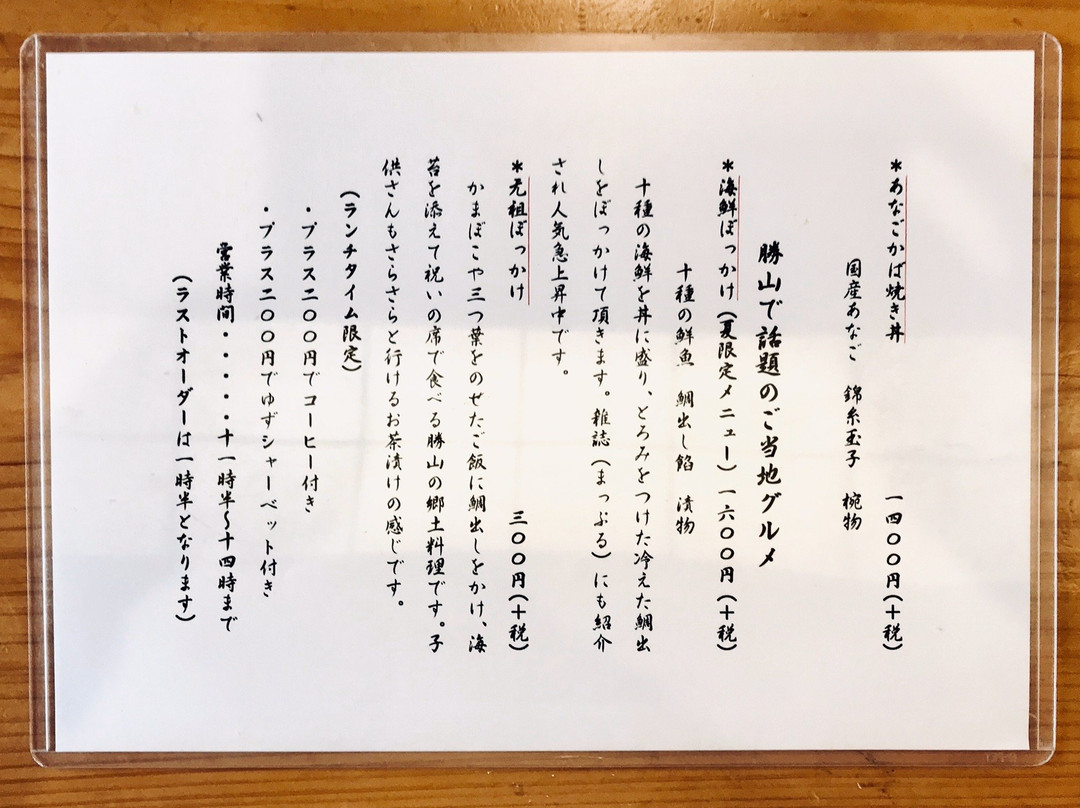 ＊あなごかば焼き丼　一四〇〇円（＋税）
国産あなご　錦糸玉子　椀物
勝山で話題のご当地グルメ
＊海鮮ぼっかけ（夏限定メニュー）一六〇〇円（＋税）
十種の鮮魚　鯛出し餡　漬物
十種の海鮮を丼に盛り、とろみをつけた冷えた鯛出
しをぼっかけて頂きます。雑誌（まっぷる）にも紹介
され人気急上昇中です。
＊元祖ぼっかけ　三〇〇円（＋税）
かまぼこや三つ葉をのせたご飯に鯛出しをかけ、海
苔を添えて祝いの席で食べる勝山の郷土料理です。子
供さんもさらさらと行けるお茶漬けの感じです。
（ランチタイム限定）
・プラス二〇〇円でコーヒー付き
・プラス二〇〇円でゆずシャーベット付き
営業時間・・・・・十一時半～十四時まで
（ラストオーダーは一時半となります）